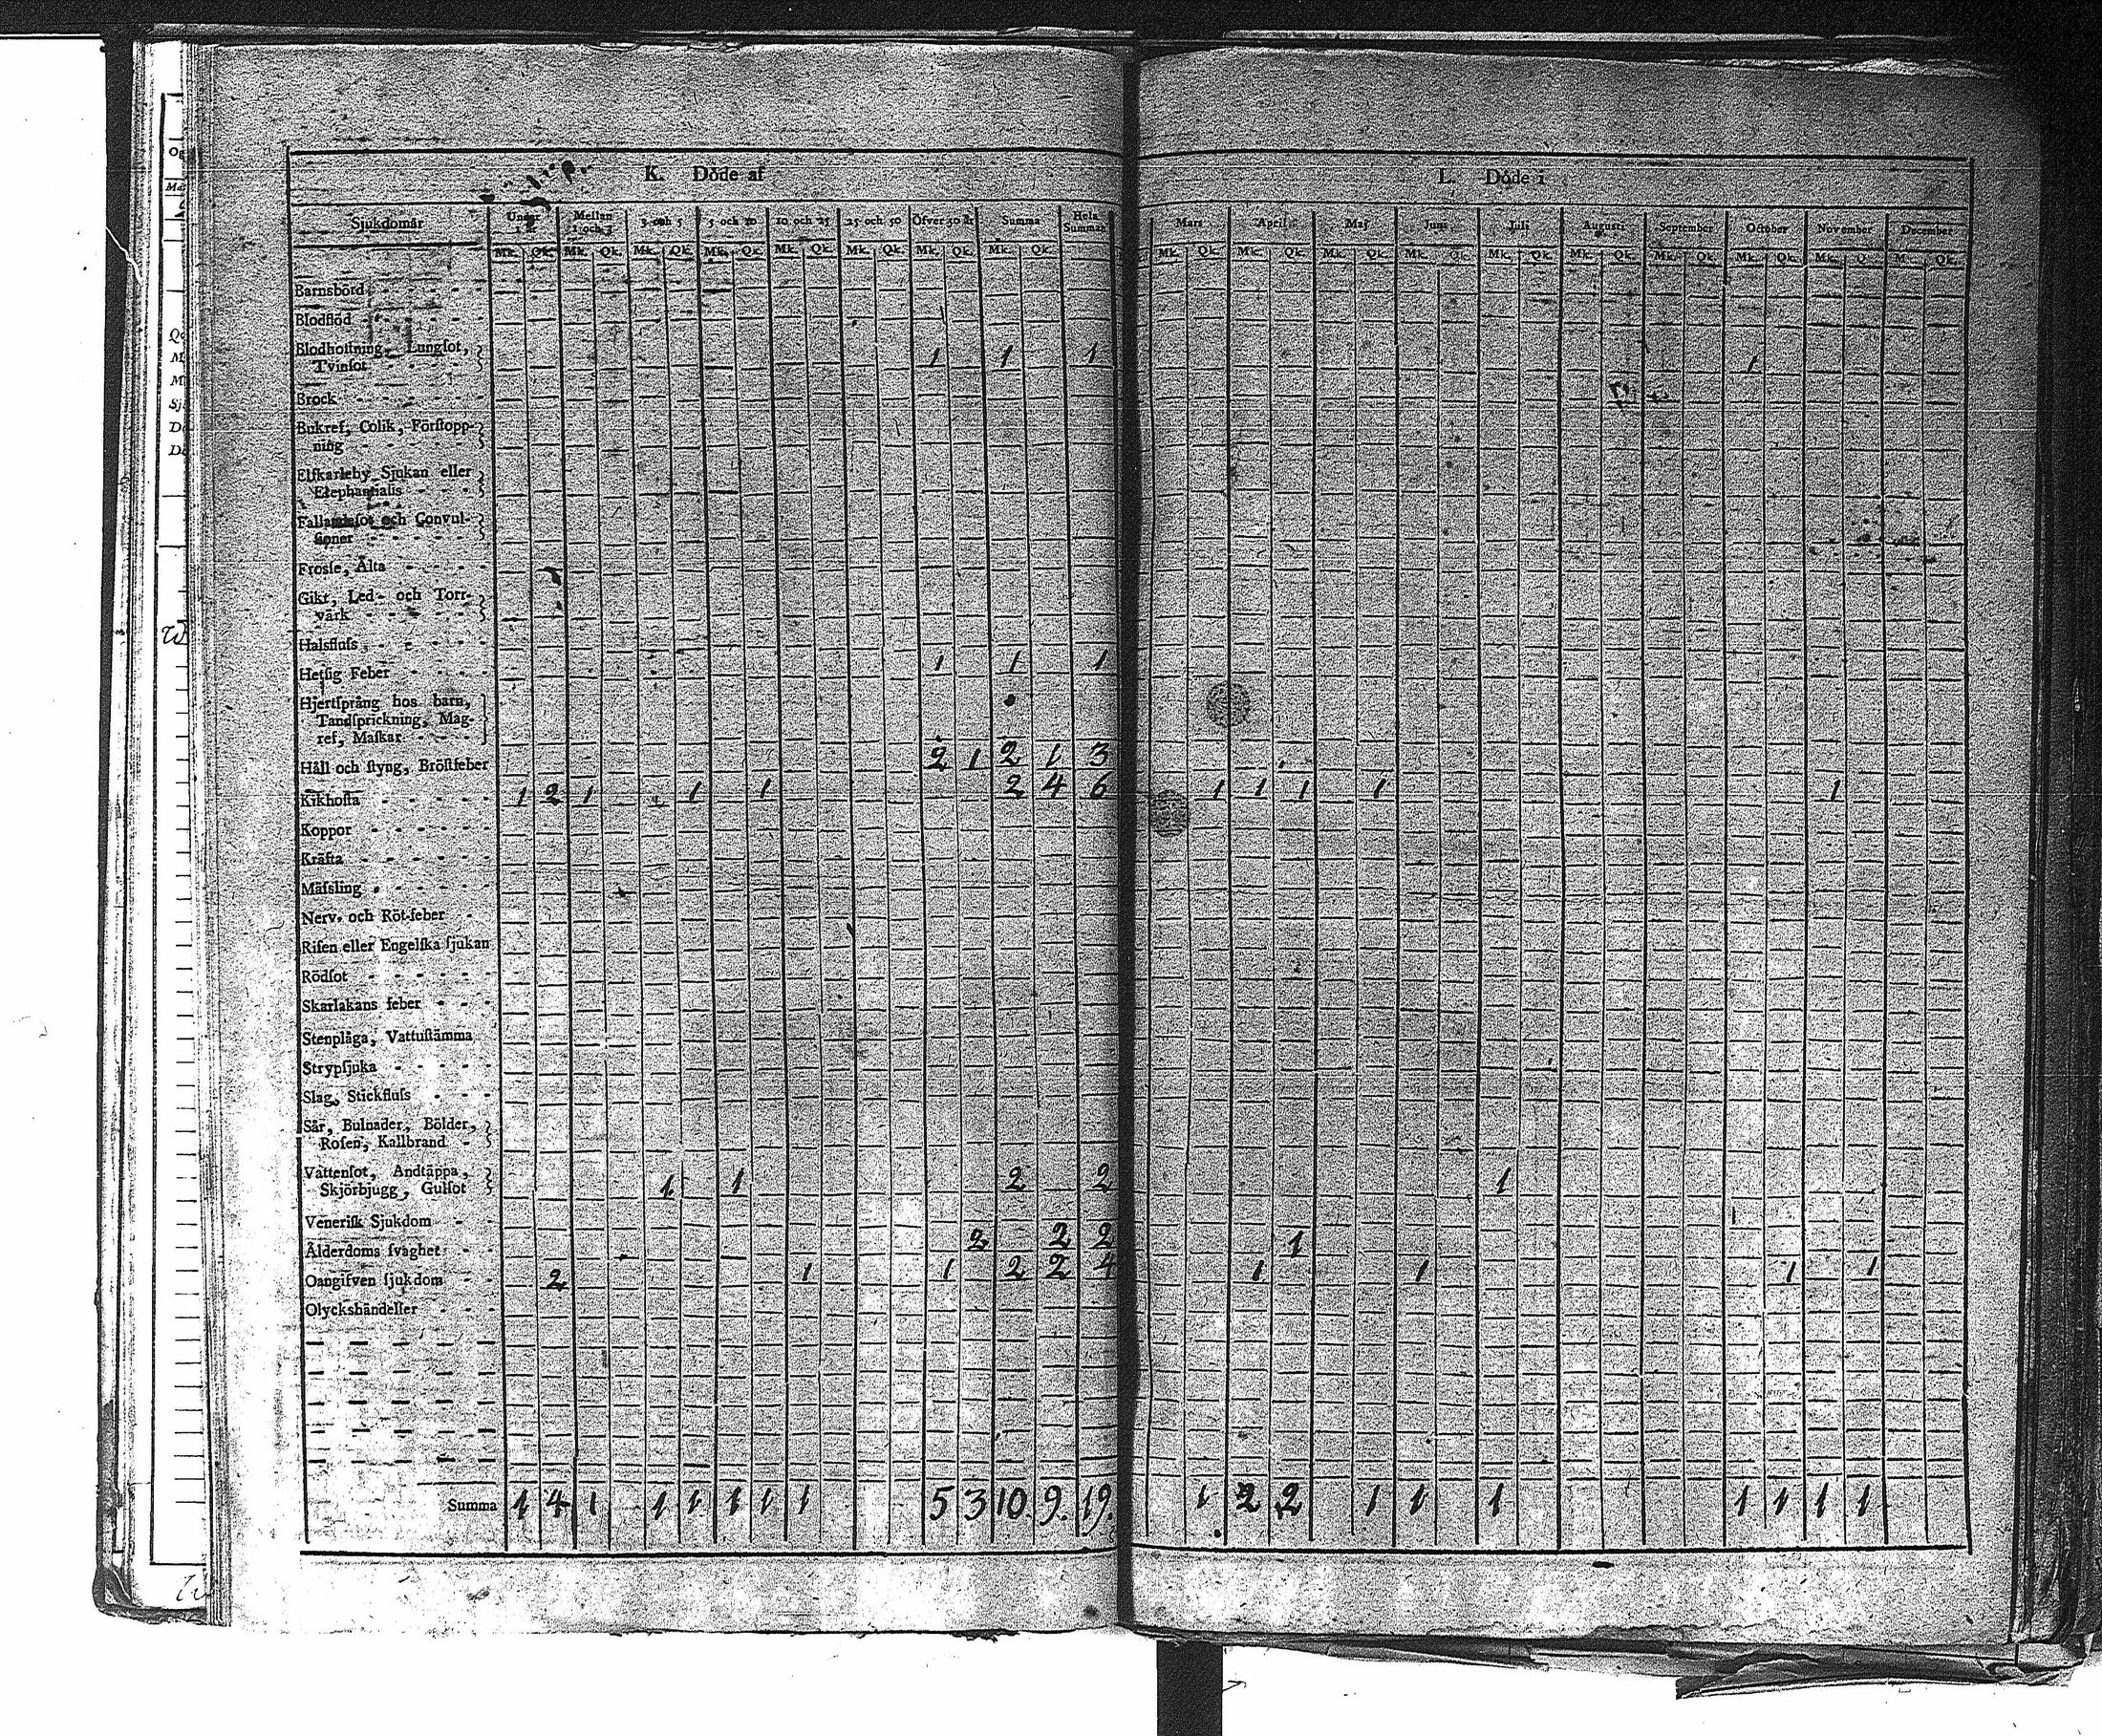 K. Döde af
L. Döde i
Sjukdomar Under Mellan 1 och 3 3 och 5 5 och 10 10 och 25 25 och 50 Öfver 50 år Summa Hela Summan Mars April Maj Juni Juli Augusti September October November December
Mk. Qk. Mk. Qk. Mk. Qk. Mk. Qk. Mk. Qk. Mk. Qk. Mk. Qk. Mk. Qk. Mk. Qk. Mk. Qk. Mk. Qk. Mk. Qk. Mk. Qk. Mk. Qk. Mk. Qk. Mk. Qk. Mk. Q Qk.
Barnsbörd
Blodflöd
Blodhostning, Lungsot,
Tvinsot 1 1 1 1
Brock
Bukref, Colik, Förstopp-
ning
Elfkarleby Sjukan eller
Elephantiasis
Fallandesot och Convul-
sioner
Frossa, Älta
Gikt, Led- och Torr-
värk
Halsfluss
Hetsig Feber 1 1 1
Hjertsprång hos barn,
Tandsprickning, Mag-
ref, Maskar
Håll och styng, Bröstfeber 2 1 2 1 3
Kikhosta 1 2 1 1 1 2 4 6 1 1 1 1 1
Koppor
Kräfta
Mässling
Nerv- och Röt-feber
Risen eller Engelska sjukan
Rödsot
Skarlakans feber
Stenplåga, Vattustämma
Strypsjuka
Slag, Stickfluss
Sår, Bulnader, Bölder,
Rosen, Kallbrand
Vattensot, Andtäppa,
Skjörbjugg, Gulsot 1 1 2 2 1
Venerisk Sjukdom 1
Ålderdoms svaghet 2 2 2 1
Oangifven sjukdom 2 1 1 2 2 4 1 1 1 1
Olyckshändelser
Summa 1 4 1 1 1 1 1 1 5 3 10. 9. 19. 1 2 2 1 1 1 1 1 1 1